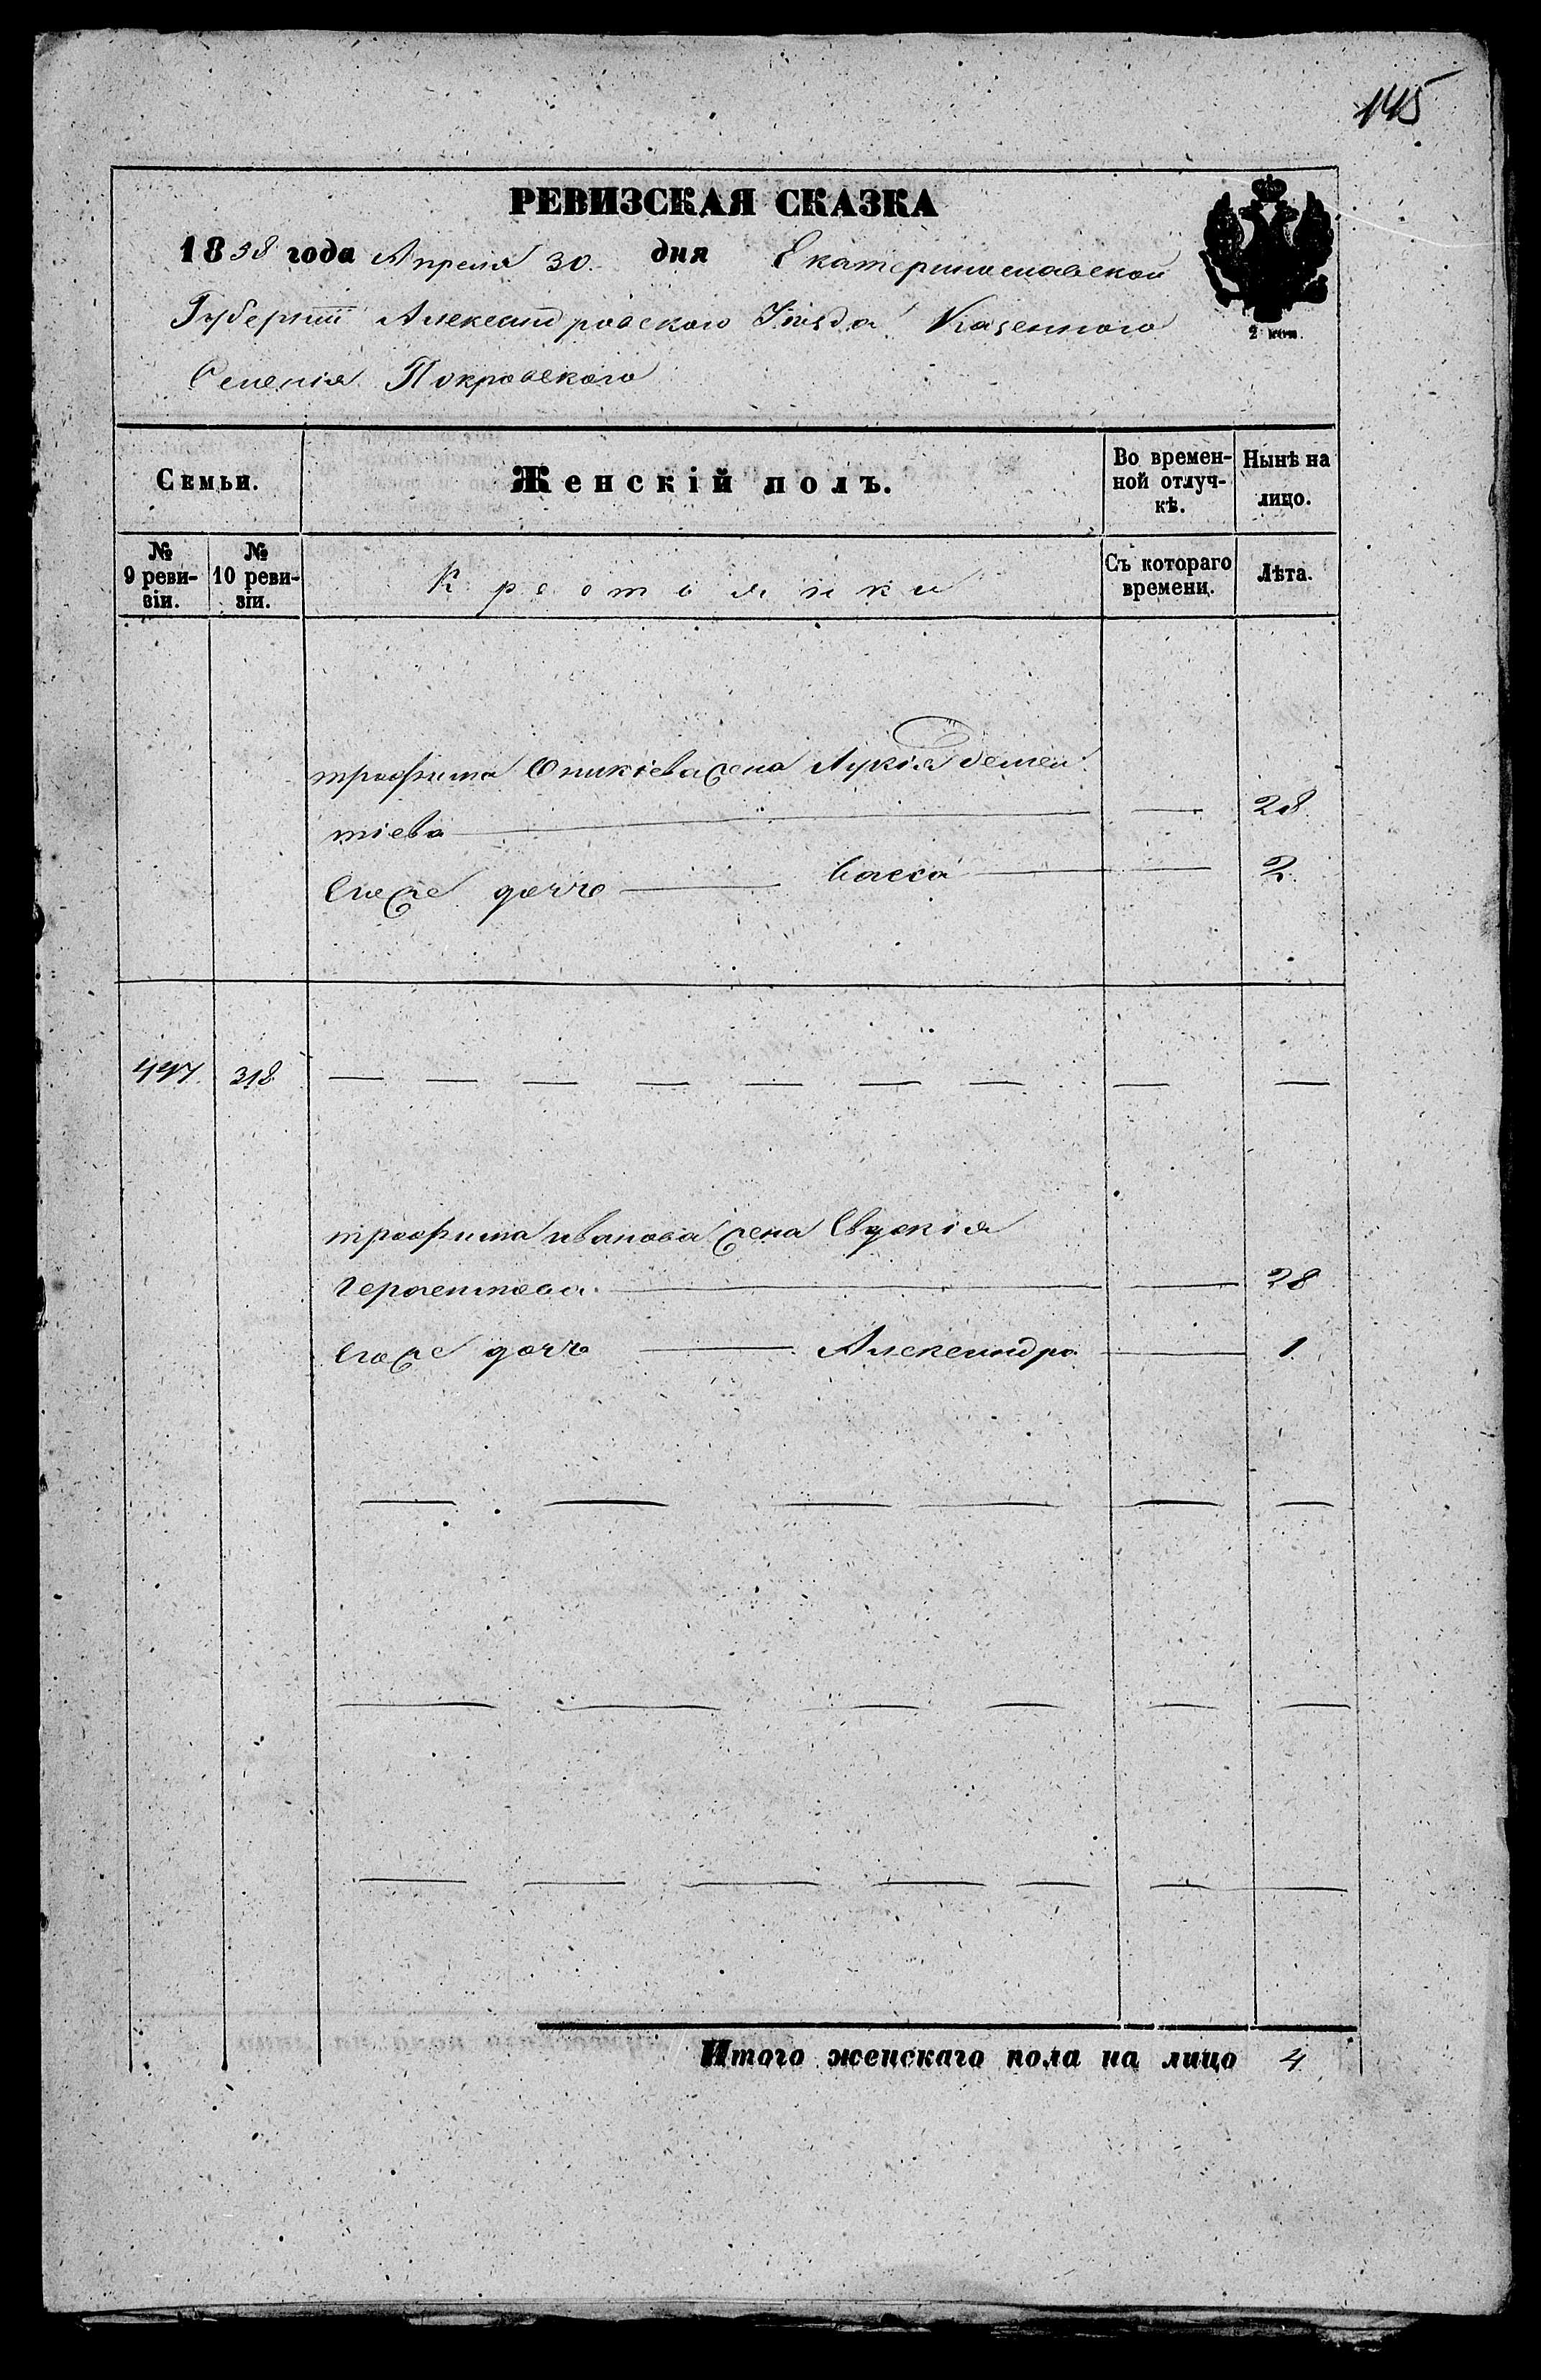 145
РЕВИЗСКАЯ СКАЗКА
1858 года Апреля 30 дня Екатеринославской
Губернии Александровского Уезда Казенного
Селенія Покровского
2 коп.
Семьи. Женскій полъ. Во времен-ной отлуч-кѣ. Нынѣ на лицо.
№ 9 реви-зіи. № 10 реви-зіи. Крестьянки Съ котораго времени. Лѣта.
трофима жена Лукія демен
тіева — — 28
Егоже дочь — Васса — — 2
497 318 — — — — — — — — —
трофима иванова жена Евдокія
Терентьева — — 28
Егоже дочь — Александра — 1
Итого женскаго пола на лицо 4